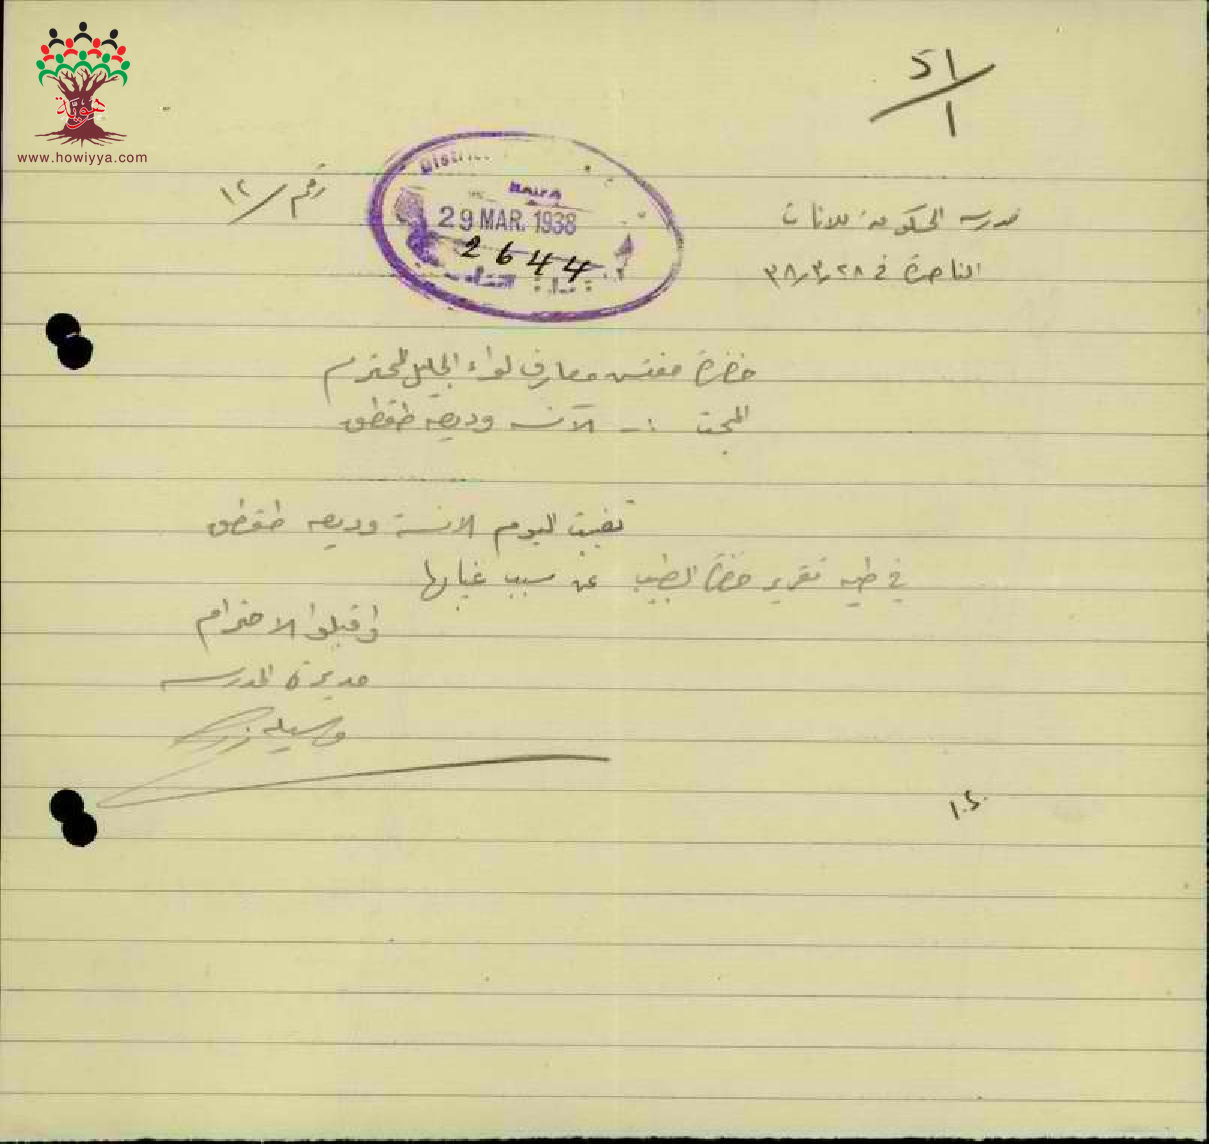 هوية
www.howiyya.com
51
1
رقم / ١٢
District
HAIFA
29 MAR. 1938
2644
مدرسة الحكومة للاناث
الناصرة في ٢٨ر٣ر٣٨
حضرة مفتش معارف لواء الجليل المحترم
المبحث :- الآنسه وديعه طقطق
تغيبت اليوم الانسة وديعه طقطق
في طيه تقرير حضرة الطبيب عن سبب غيابها
واقبلوا الاحترام
مديرة المدرسه